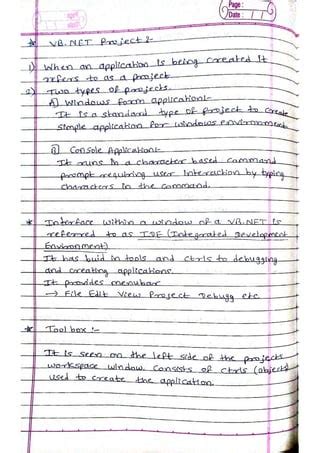 Page :
Date : / /
* VB.NET Project :-
1) When an application is being created it
refers to as a project.
2) Two types of projects.
A) Windows form application:-
It is a standard type of project to create
simple application for windows environment
B) Console Application:-
It runs in a character based command
prompt requiring user interaction by typing
characters in the command.
* Interface within a window of a VB.NET is
referred to as IDE (Integrated Development
Environment)
It has buid in tools and ctrls to debugging
and creating applications.
It provides menubar
→ File Edit View Project Debugg etc
* Tool box :-
It is seen on the left side of the projects
workspace window. Consists of ctrls (objects)
used to create the application.